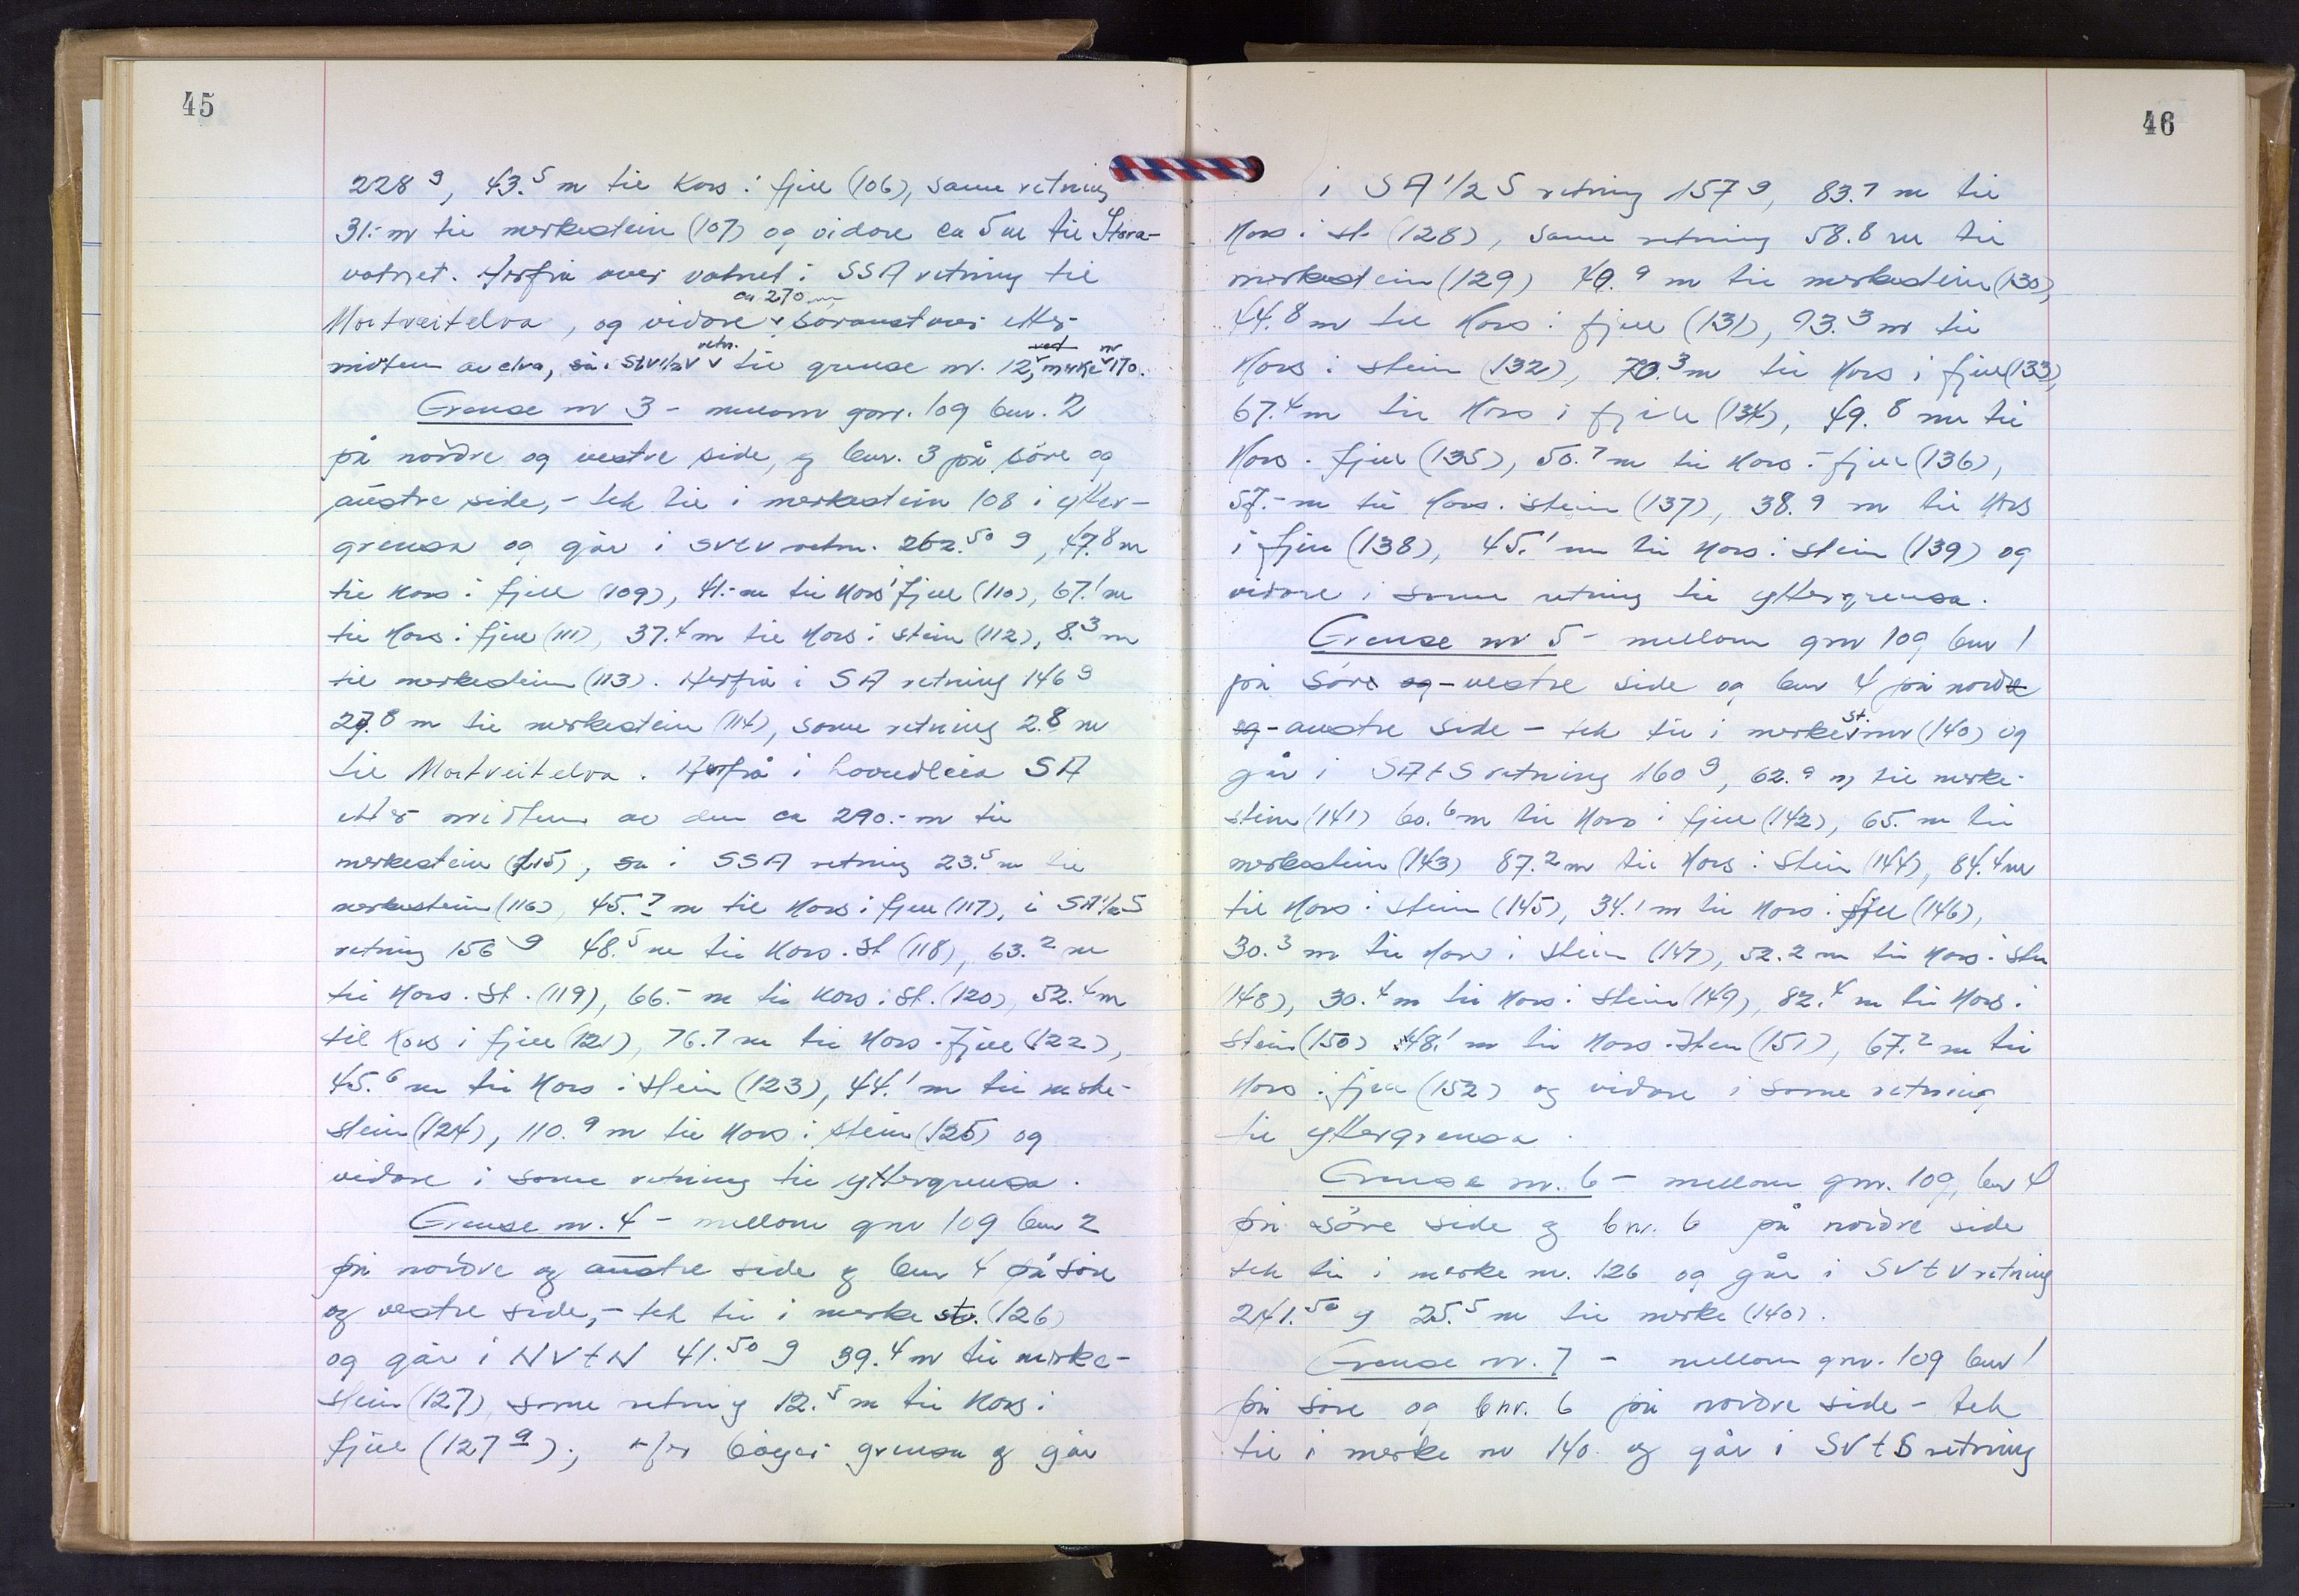 45
228 g, 43.5 m til kors i fjell (106), same retning
31.- m til merkestein (107) og vidare ca 5 m til Stora-
vatnet. Herfrå over vatnet i SSA retning til
ca 270 m
Mortveitelva, og vidare søraustover etter
retn. ved nr
midten av elva, så i til grense nr. 12, merke 170.
Grense nr 3 - mellom gnr. 109 bnr. 2
på nordre og vestre side, og bnr. 3 på søre og
austre side, - tek til i merkestein 108 i ytter-
grensa og går i SVtV retn. 262.50 g, 47.8 m
til kors i fjell (109), 41.- m til kors i fjell (110), 67.1 m
til kors i fjell (111), 37.4 m til kors i stein (112), 8.3 m
til merkestein (113). Herfrå i SA retning 146 g
27.8 m til merkestein (114), same retning 2.8 m
til Mortveitelva. Herfrå i hovudleia SA
etter midten av den ca 290.- m til
merkestein (115), så i SSA retning 23.5 m til
merkestein (116), 45.7 m til kors i fjell (117), i SA 1/2 S
retning 156 g 48.5 m til kors i st (118), 63.2 m
til kors i st. (119), 66.- m til kors i st. (120), 52.4 m
til kors i fjell (121), 76.7 m til kors i fjell (122),
45.6 m til kors i stein (123), 44.1 m til merke-
stein (124), 110.9 m til kors i stein (125) og
vidare i same retning til yttergrensa.
Grense nr. 4 - mellom gnr 109 bnr 2
på nordre og austre side og bnr 4 på søre
og vestre side, - tek til i merke st. (126)
og går i NVtN 41.50 g 39.4 m til merke-
stein (127), same retning 12.5 m til kors i
fjell (127 a), her bøyer grensa og går
46
i SA 1/2 S retning 157 g, 83.7 m til
kors i st (128), same retning 58.8 m til
merkestein (129) 40.9 m til merkestein (130),
44.8 m til kors i fjell (131), 93.3 m til
kors i stein (132), 70.3 m til kors i fjell (133),
67.4 m til kors i fjell (134), 49.8 m til
kors i fjell (135), 50.7 m til kors i fjell (136),
57.- m til kors i stein (137), 38.9 m til kors
i fjell (138), 45.1 m til kors i stein (139) og
vidare i same retning til yttergrensa.
Grense nr 5 - mellom gnr 109 bnr 1
på søre og vestre side og bnr 4 på nordre
st.
og austre side - tek til i merke nr (140) og
går i SAtS retning 160 g, 62.9 m til merke-
stein (141) 60.6 m til kors i fjell (142), 65. m til
merkestein (143) 87.2 m til kors i stein (144), 84.4 m
til kors i stein (145), 34.1 m til kors i fjell (146),
30.3 m til kors i stein (147), 52.2 m til kors i stein
(148), 30.4 m til kors i stein (149), 82.4 m til kors i
stein (150) 48.1 m til kors i stein (151), 67.2 m til
kors i fjell (152) og vidare i same retning
til yttergrensa.
Grense nr. 6 - mellom gnr. 109, bnr 4
på søre side og bnr. 6 på nordre side
tek til i merke nr. 126 og går i SVtV retning
241.50 g 25.5 m til merke (140).
Grense nr. 7 - mellom gnr. 109 bnr 1
på søre og bnr. 6 på nordre side - tek
til i merke nr 140 og går i SVtS retning